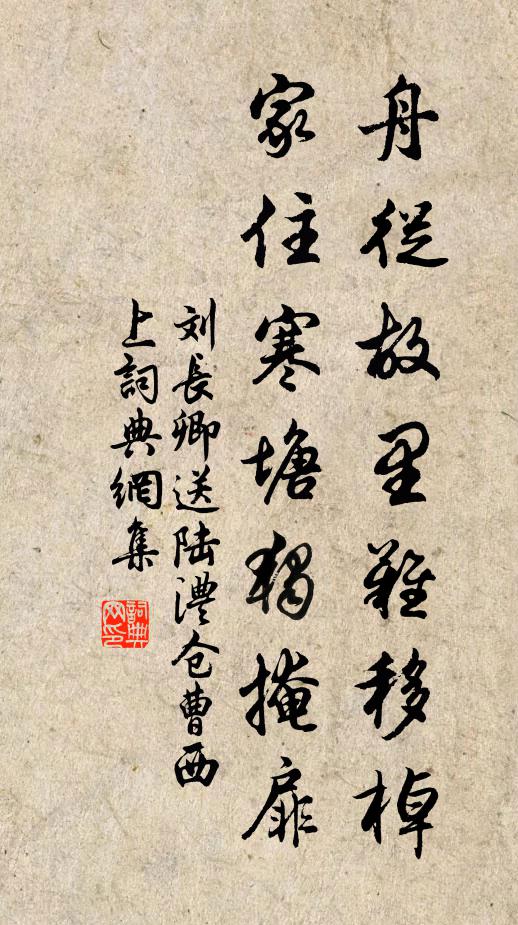 舟從故里難移棹
家住寒塘獨掩扉
刘長卿送陆澧仓曹西
上詞典網集
詞典网印